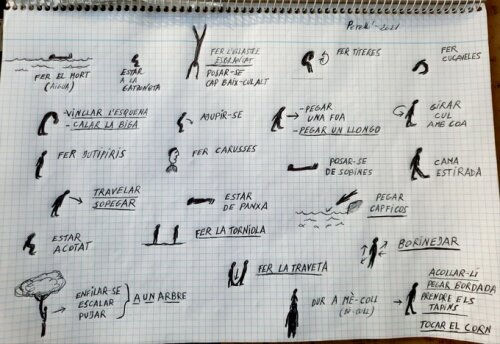 Perelló-2021
FER EL MORT
(AIGUA)
ESTAR
A LA
GATZONETA
FER L'ELASTRE
ESBLANCAT
POSAR-SE
CAP BAIX-CUL ALT
FER TITERES
FER
CUCAVELES
-VINCLAR L'ESQUENA
-CALAR LA BIGA
AJUPIR-SE
-PEGAR
UNA FUA
-PEGAR UN LLONGO
GIRAR
CUL
AMB COA
FER BOTIPIRIS
FER CARUSSES
POSAR-SE
DE SOBINES
CAMA
ESTIRADA
TRAVELAR
SOPEGAR
ESTAR
DE PANXA
PEGAR
CAPFICOS
ESTAR
ACOTAT
FER LA TORNIOLA
BORINEJAR
ENFILAR-SE
ESCALAR
PUJAR
A UN ARBRE
FER LA TRAVETA
DUR A MÈ-COLL
ACOLLAR-LI
PEGAR BORDADA
PRENDRE ELS
TAPINS
TOCAR EL CORN